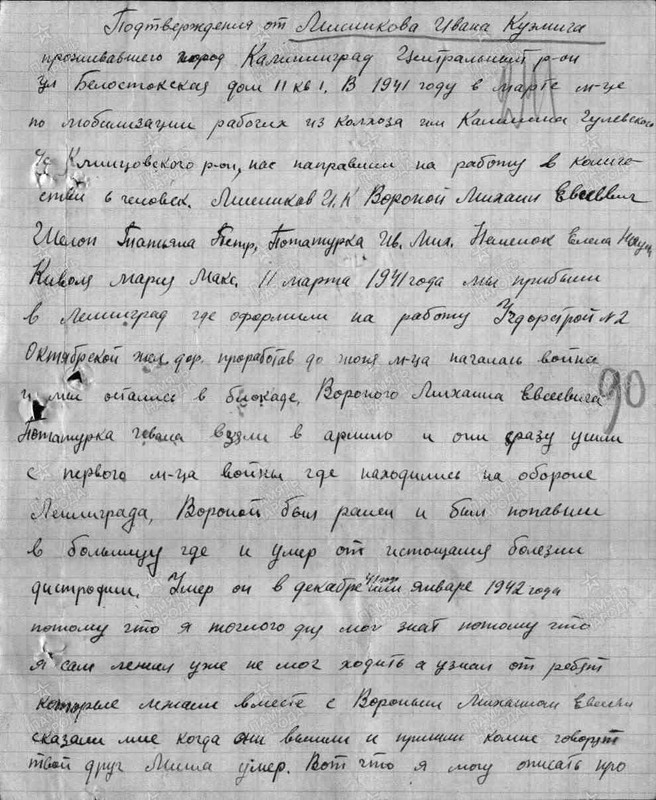 Подтверждения от Лисникова Ивана Кузмича
проживавшего город Калининград Центральный р-он
ул Белостокская дом 11 кв 1. В 1941 году в марте м-це
по мобилизации рабочих из колхоза им Калинина Гулевского
с/с Клинцовского р-он, нас направили на работу в количе-
стве 6 человек. Лисников И.К Вороной Михаил Евсеевич
Шелоп Татьяна Петр, Потатурка Ив. Мих. Пеменок Елена
Киволя Мария Макс. 11 марта 1941 года мы прибыли
в Ленинград где оформили на работу Удорстрой №2
Октябрской жел. дор. проработав до июня м-ца началась война
и мы остались в блокаде, Вороного Михаила Евсеевича
90
Потатурка Ивана взяли в армию и они сразу ушли
с первого м-ца войны где находились на обороне
Ленинграда, Вороной был ранен и был попавши
в больницу где и умер от истощения болезни
дистрофии. Умер он в декабре 41 год или январе 1942 года
потому что я точного дня мог знат потому что
я сам лежал уже не мог ходить а узнал от ребят
которые лежали вместе с Вороным Михаилом Евсееви
сказали мне когда они вышли и пришли ко мне говорят
твой друг Миша умер. Вот что я могу описать про